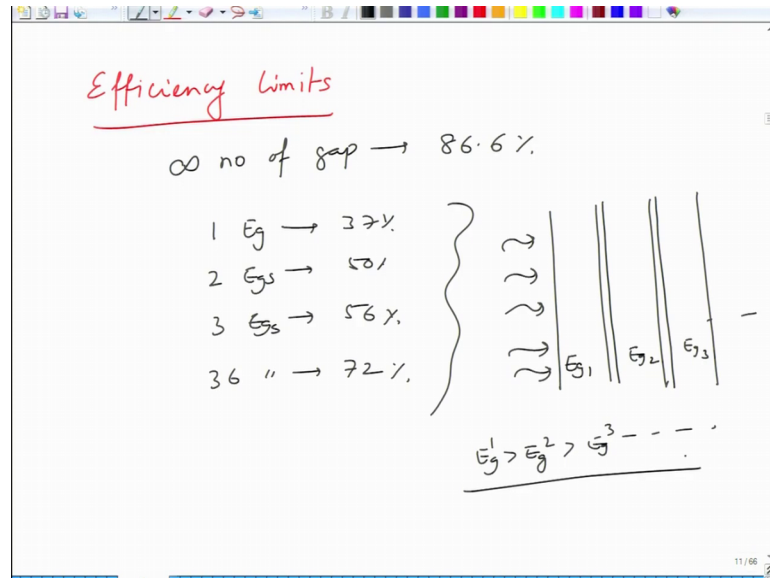 B I
Efficiency Limits
∞ no of gap → 86.6 %.
1 Eg → 37%.
2 Egs → 50%
3 Egs → 56 %.
36 " → 72 %.
Eg1 Eg2 Eg3 -
Eg^1 > Eg^2 > Eg^3 - - - .
11 / 66